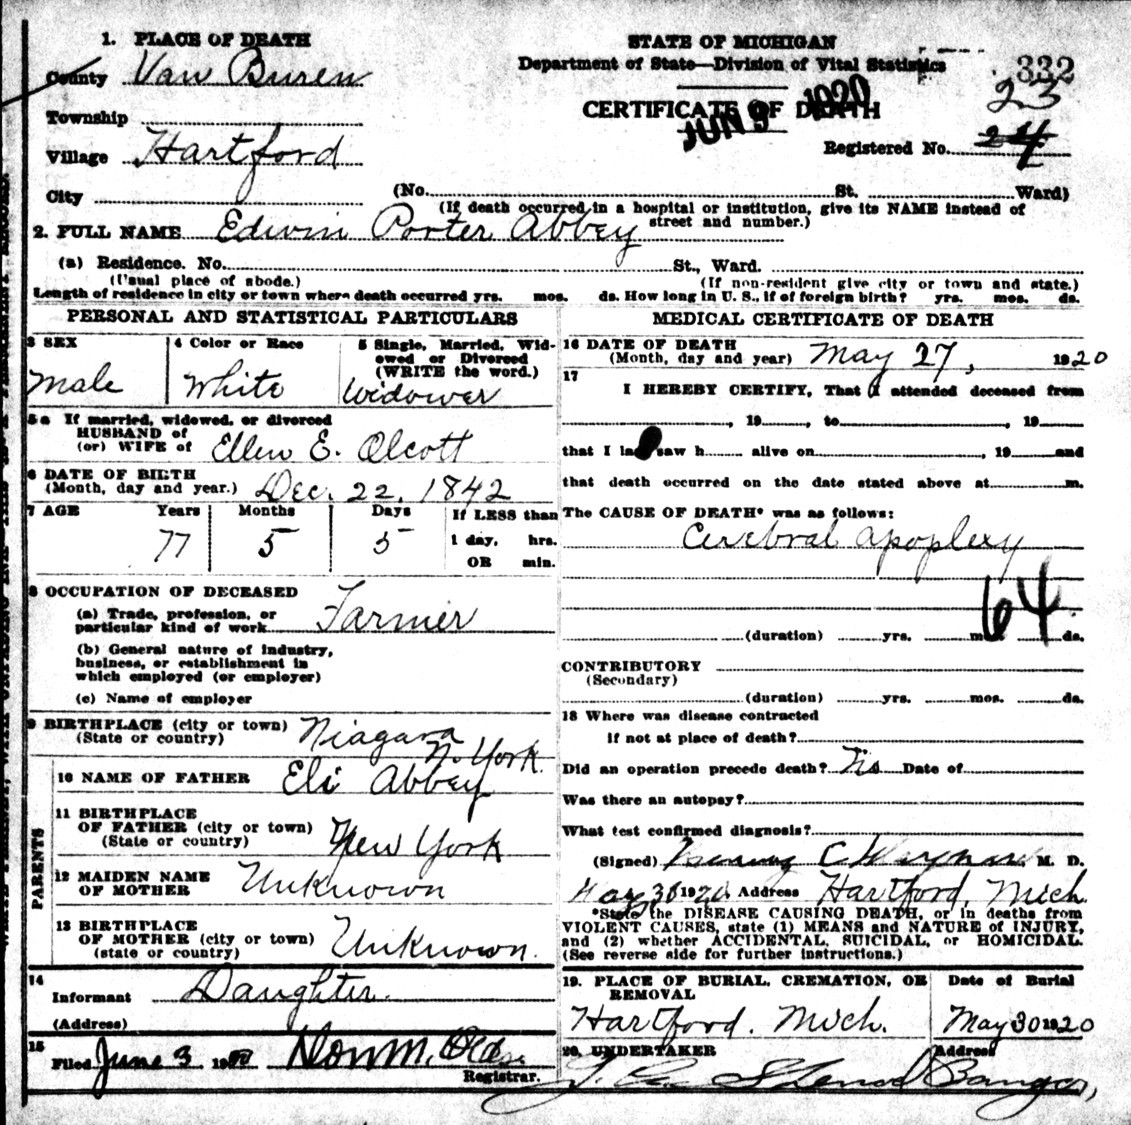 1. PLACE OF DEATH
County Van Buren
Township
Village Hartford
City
STATE OF MICHIGAN
Department of State—Division of Vital Statistics
CERTIFICATE OF DEATH
JUN 9 1920
332
23
Registered No. 24
(No. St. Ward)
(If death occurred in a hospital or institution, give its NAME instead of
street and number.)
2. FULL NAME Edwin Porter Abbey
(a) Residence. No. St., Ward.
(Usual place of abode.) (If non-resident give city or town and state.)
Length of residence in city or town where death occurred yrs. mos. ds. How long in U. S., if of foreign birth? yrs. mos. ds.
PERSONAL AND STATISTICAL PARTICULARS
3 SEX
Male
4 Color or Race
White
5 Single, Married, Wid-
owed or Divorced
(WRITE the word.)
Widower
5a If married, widowed, or divorced
HUSBAND of
(or) WIFE of Ellen E. Olcott
6 DATE OF BIRTH
(Month, day and year.) Dec. 22, 1842
7 AGE Years Months Days If LESS than
77 5 5 1 day, hrs.
OR min.
8 OCCUPATION OF DECEASED
(a) Trade, profession, or
particular kind of work Farmer
(b) General nature of industry,
business, or establishment in
which employed (or employer)
(c) Name of employer
9 BIRTHPLACE (city or town) Niagara
(State or country) N. York.
PARENTS
10 NAME OF FATHER Eli Abbey
11 BIRTHPLACE
OF FATHER (city or town)
(State or country) New York
12 MAIDEN NAME
OF MOTHER Unknown
13 BIRTHPLACE
OF MOTHER (city or town)
(state or country) Unknown.
14
Informant Daughter.
(Address)
15
Filed June 3 19 Don M.
Registrar.
MEDICAL CERTIFICATE OF DEATH
16 DATE OF DEATH
(Month, day and year) May 27, 1920
17
I HEREBY CERTIFY, That I attended deceased from
, 19 , to , 19
that I last saw h alive on , 19 and
that death occurred on the date stated above at m.
The CAUSE OF DEATH* was as follows:
Cerebral apoplexy
64
(duration) yrs. mos. ds.
CONTRIBUTORY
(Secondary)
(duration) yrs. mos. ds.
18 Where was disease contracted
if not at place of death?
Did an operation precede death? No Date of
Was there an autopsy?
What test confirmed diagnosis?
(Signed) C M. D.
May 30 1920 Address Hartford, Mich.
*State the DISEASE CAUSING DEATH, or in deaths from
VIOLENT CAUSES, state (1) MEANS and NATURE of INJURY,
and (2) whether ACCIDENTAL, SUICIDAL, or HOMICIDAL.
(See reverse side for further instructions.)
19. PLACE OF BURIAL, CREMATION, OR
REMOVAL
Hartford. Mich.
Date of Burial
May 30 1920
20. UNDERTAKER
Address
Bangor,